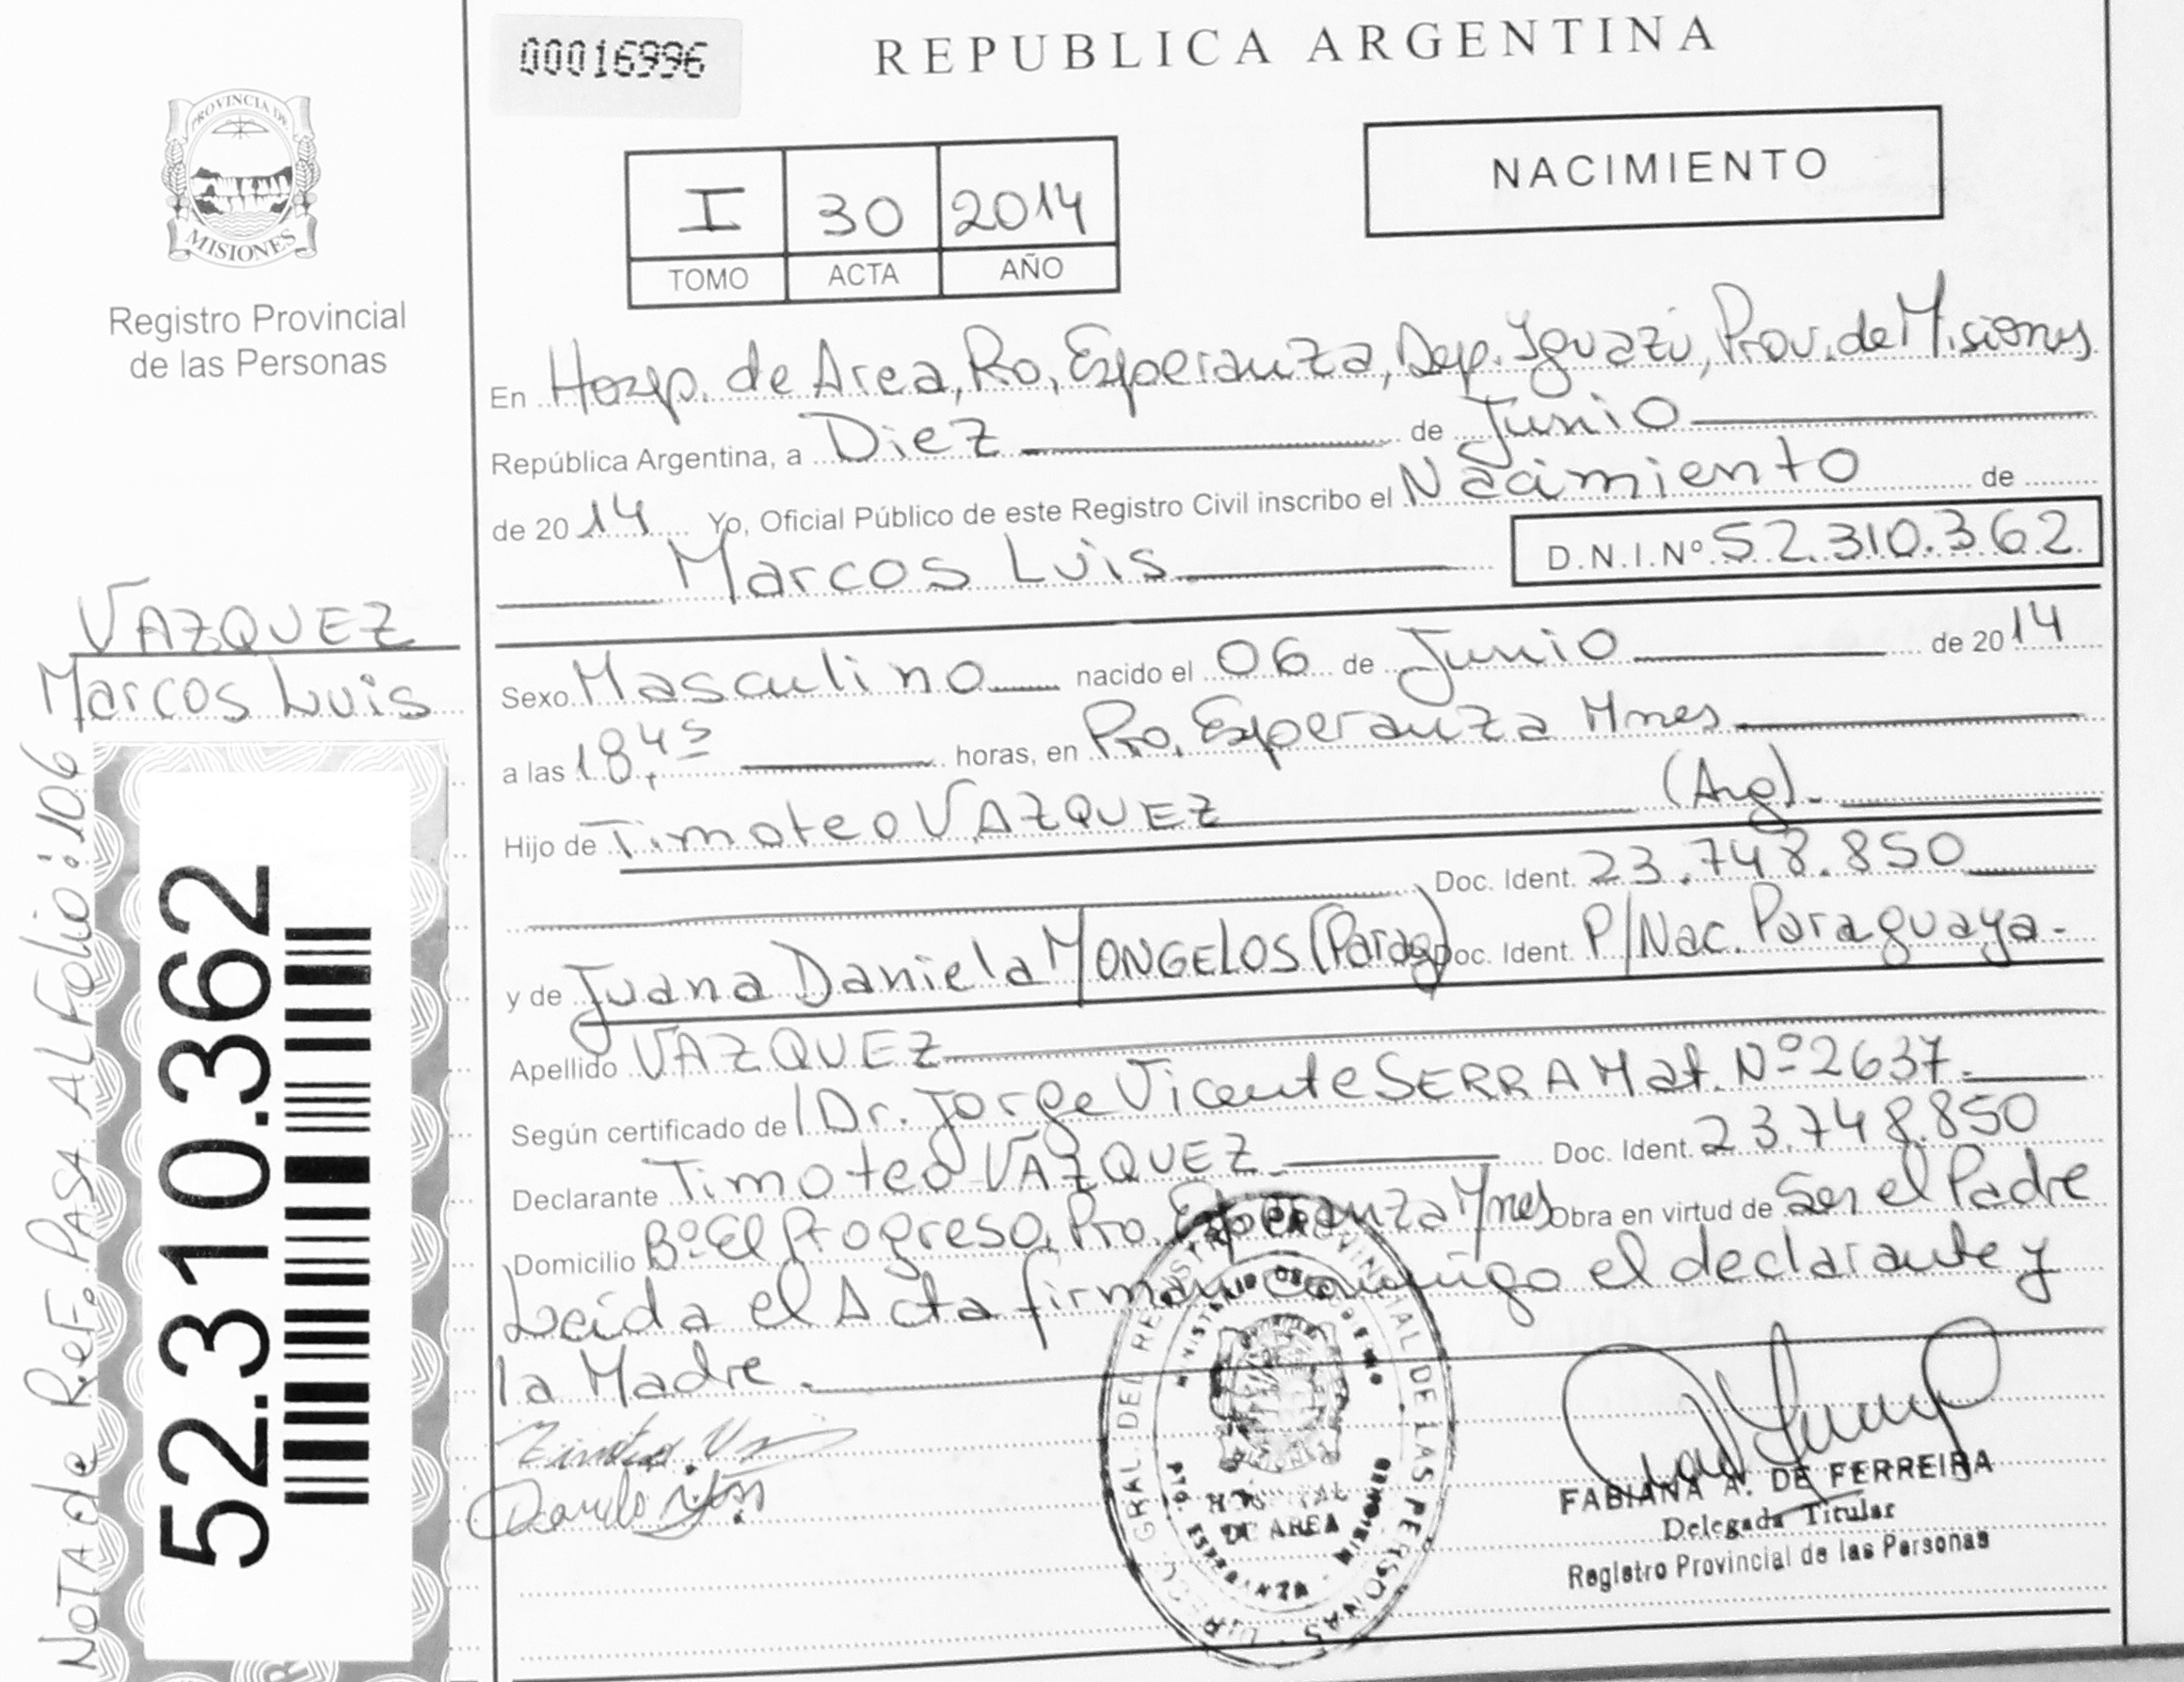 00016996
REPUBLICA ARGENTINA
PROVINCIA DE
MISIONES
Registro Provincial
de las Personas
I 30 2014
TOMO ACTA AÑO
NACIMIENTO
En Hosp. de Area, Pto, Esperanza, Dep. Iguazú, Prov. de Misiones
República Argentina, a Diez de Junio
de 2014 Yo, Oficial Público de este Registro Civil inscribo el Nacimiento de
Marcos Luis D.N.I.Nº 52.310.362
VAZQUEZ
Marcos Luis
Sexo Masculino nacido el 06 de Junio de 2014
a las 18,45 horas, en Pto. Esperanza Mnes
Hijo de Timoteo VAZQUEZ (Arg).
Doc. Ident. 23.748.850
y de Juana Daniela MONGELOS (Parag) Doc. Ident. P/Nac. Paraguaya.
Apellido VAZQUEZ
Según certificado de Dr. Jorge Vicente SERRA Mat. Nº 2637.
Declarante Timoteo VAZQUEZ Doc. Ident. 23.748.850
Domicilio Bº El Progreso, Pto. Esperanza Mnes Obra en virtud de Ser el Padre
Leída el Acta firman conmigo el declarante y
la Madre.
NOTA de ReF. PASA AL Folio: 106
52.310.362
DE LAS PERSONAS
HOSPITAL
DE AREA
PTO. ESPERANZA - MISIONES
FABIANA A. DE FERREIRA
Delegada Titular
Registro Provincial de las Personas